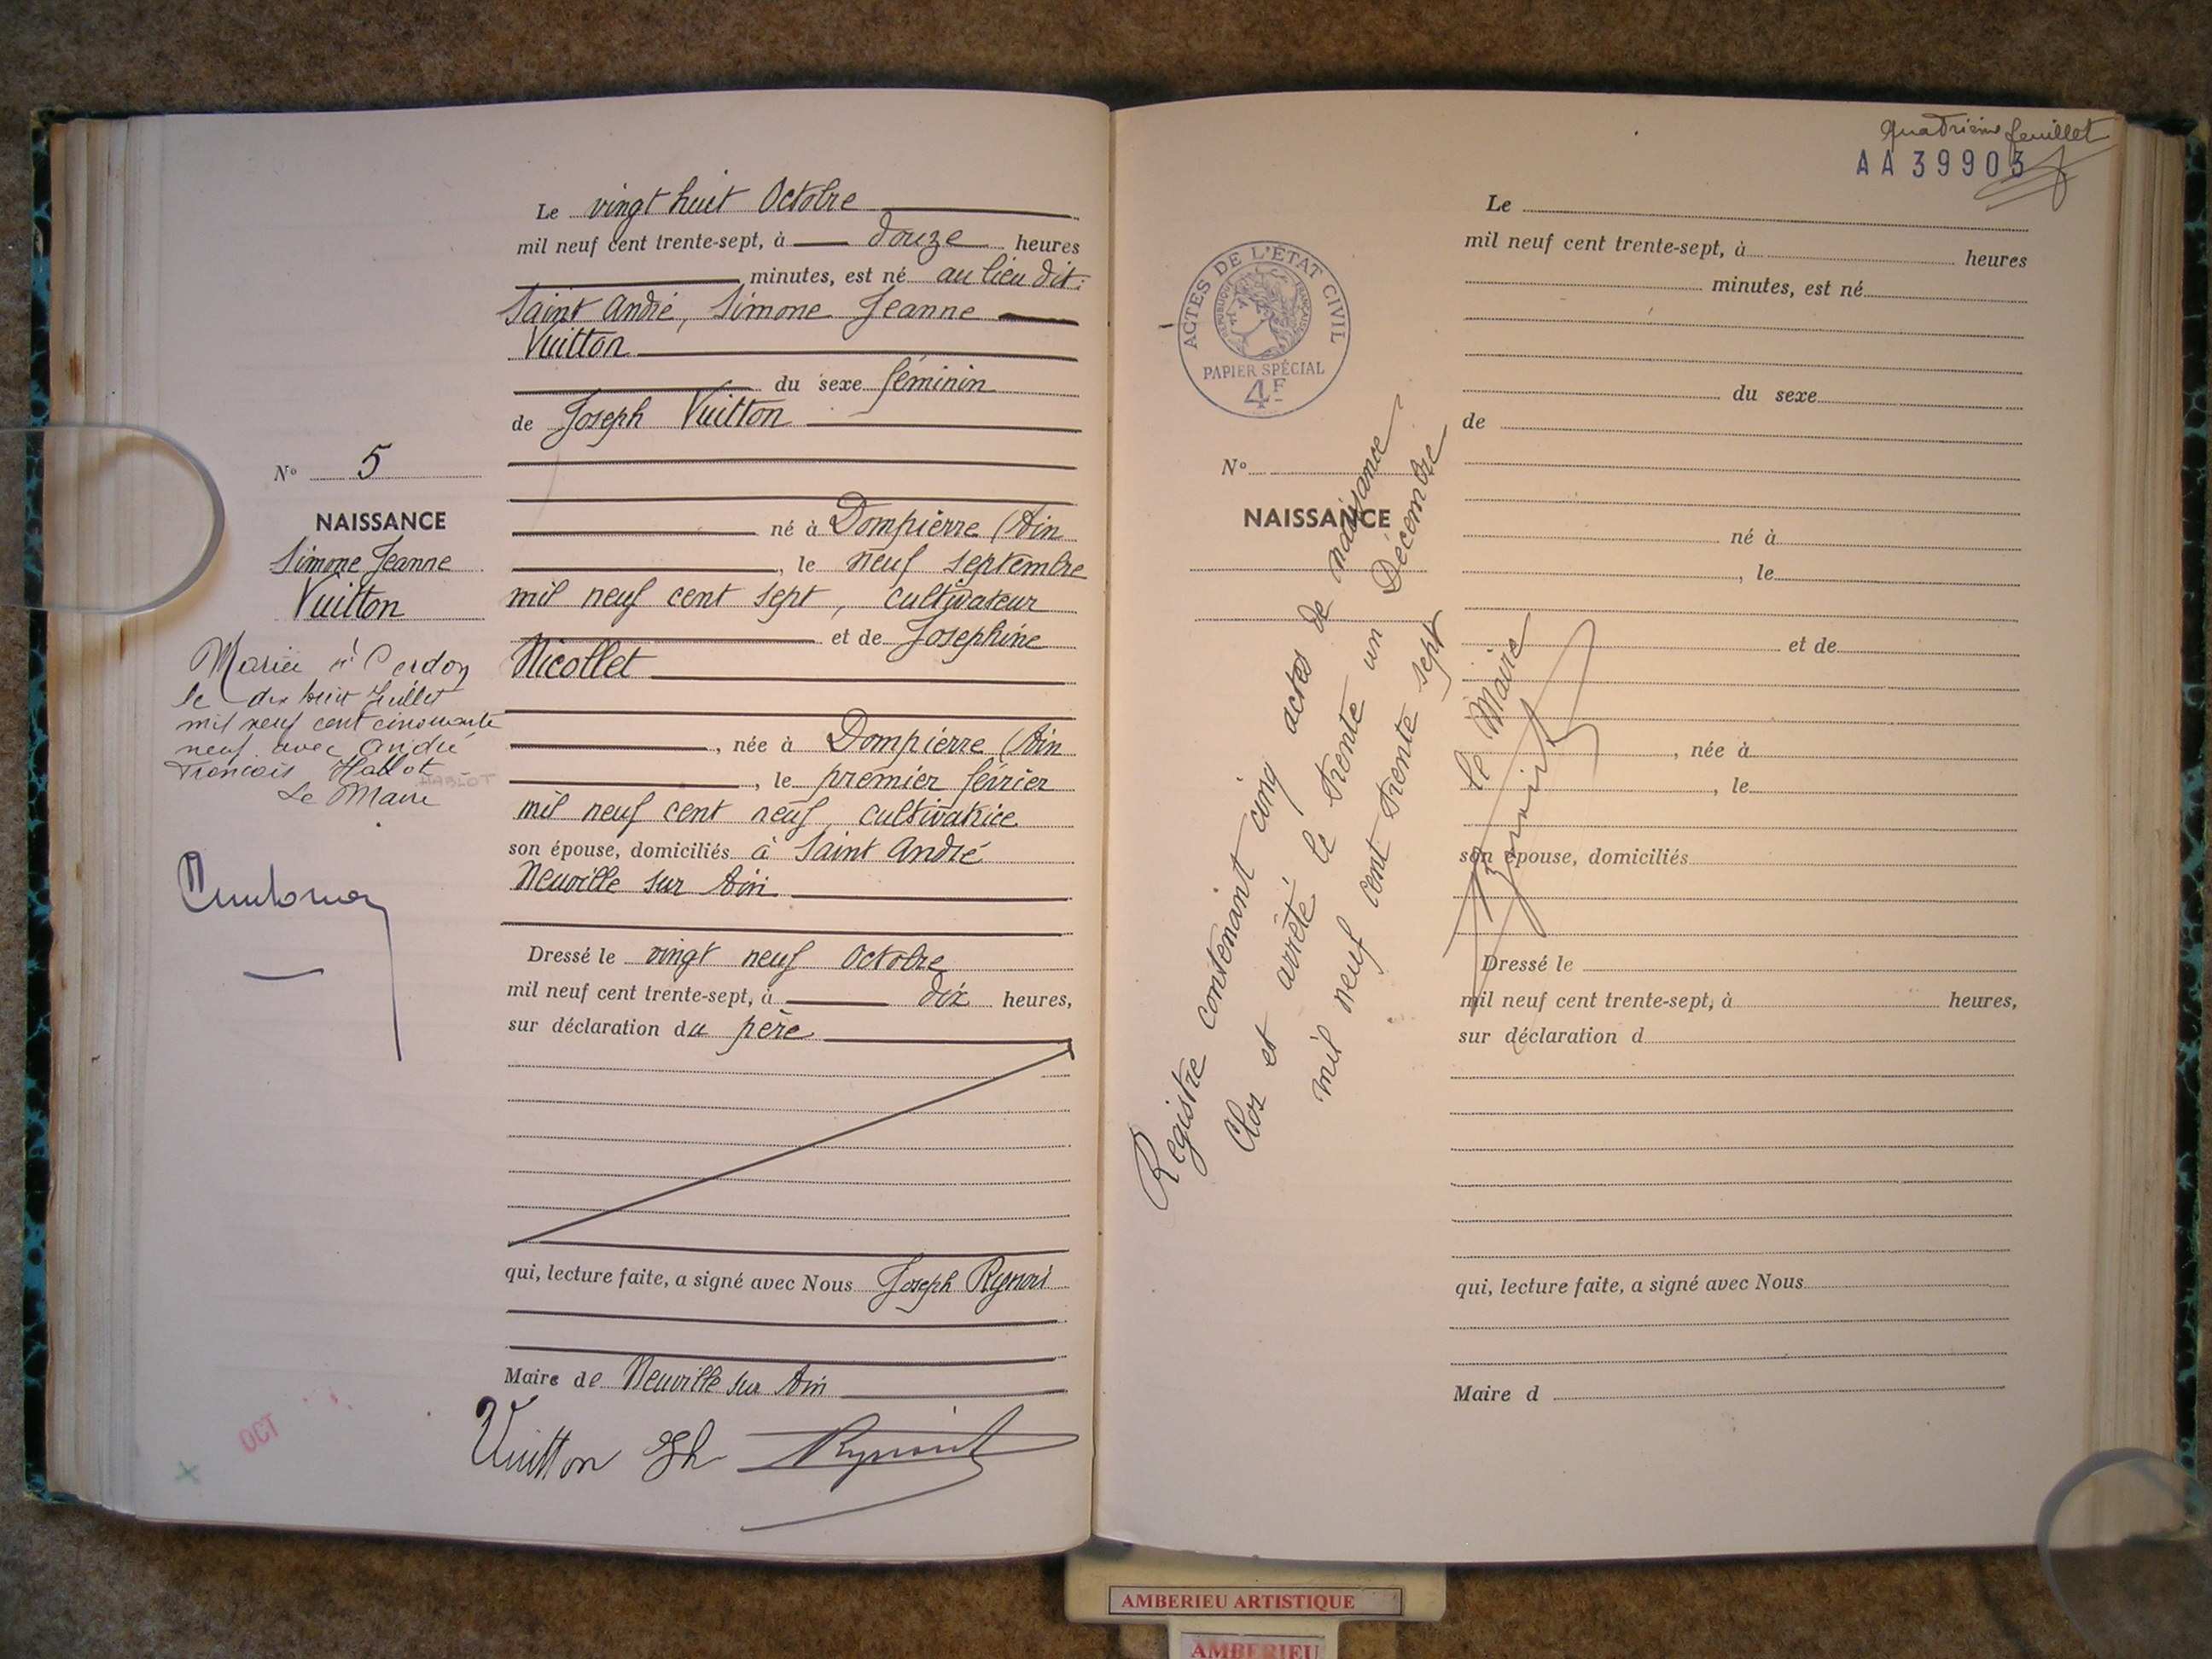 Le vingt huit Octobre
mil neuf cent trente-sept, à douze heures
minutes, est né au lieu dit:
Saint André, Simone Jeanne
Vuitton
du sexe féminin
de Joseph Vuitton
né à Dompierre (Ain
, le neuf septembre
mil neuf cent sept, cultivateur
et de Josephine
Nicollet
, née à Dompierre (Ain
, le premier février
mil neuf cent neuf, cultivatrice
son épouse, domiciliés à Saint André
Neuville sur Ain
Dressé le vingt neuf Octobre
mil neuf cent trente-sept, à dix heures,
sur déclaration du père
qui, lecture faite, a signé avec Nous Joseph
Maire de Neuville sur Ain
Vuitton Jh
No 5
NAISSANCE
Simone Jeanne
Vuitton
Mariée à Cerdon
le dix huit Juillet
mil neuf cent cinquante
neuf avec André
François Hablot
HABLOT
Le Maire
OCT
quatrième feuillet
AA 39903
ACTES DE L'ÉTAT CIVIL
RÉPUBLIQUE FRANÇAISE
PAPIER SPÉCIAL
4F
Le
mil neuf cent trente-sept, à heures
minutes, est né
du sexe
de
No
NAISSANCE
né à
, le
et de
, née à
, le
son épouse, domiciliés
Dressé le
mil neuf cent trente-sept, à heures,
sur déclaration d
qui, lecture faite, a signé avec Nous
Maire d
Registre contenant cinq actes de naissance
Clos et arrêté le trente un Décembre
mil neuf cent trente sept
le Maire
AMBERIEU ARTISTIQUE
AMBERIEU